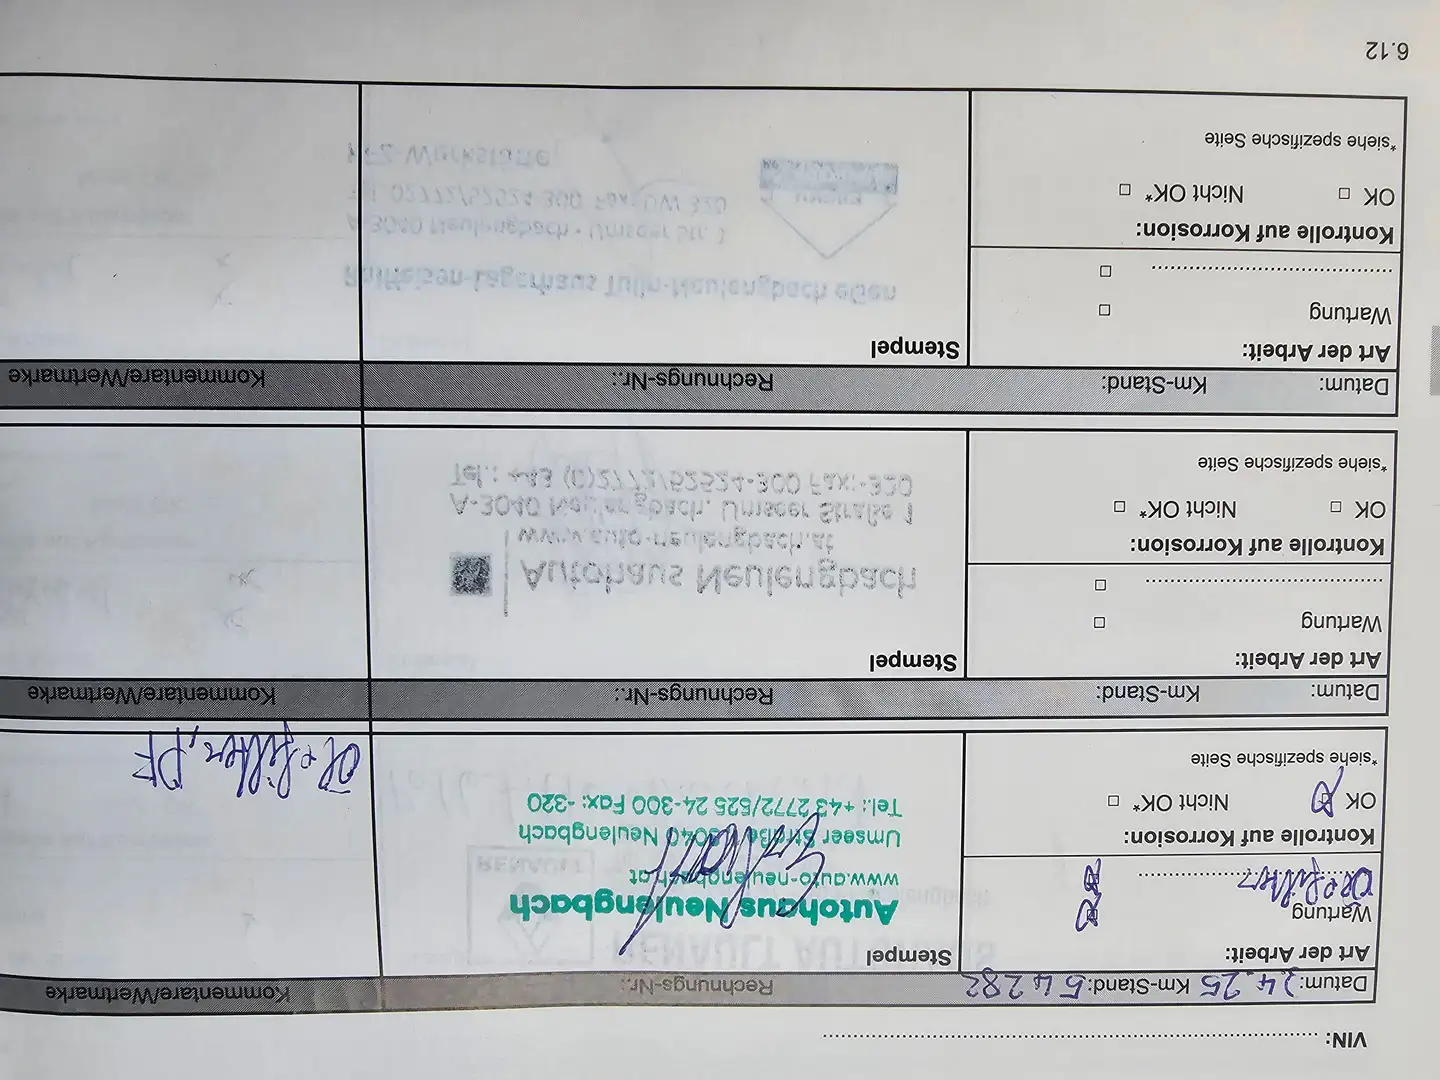 VIN:
Datum: 2.4.25 Km-Stand: 54282 Rechnungs-Nr.: Kommentare/Wertmarke
Art der Arbeit:
Wartung
Öl+Filter
Kontrolle auf Korrosion:
OK Nicht OK*
*siehe spezifische Seite
Stempel
Autohaus Neulengbach
www.auto-neulengbach.at
Umseer Straße 1, 3040 Neulengbach
Tel.: +43 2772/525 24-300 Fax: -320
Öl+Filter, PF
Datum: Km-Stand: Rechnungs-Nr.: Kommentare/Wertmarke
Art der Arbeit:
Wartung
Kontrolle auf Korrosion:
OK Nicht OK*
*siehe spezifische Seite
Stempel
Autohaus Neulengbach
www.auto-neulengbach.at
A-3040 Neulengbach, Umseer Straße 1
Tel.: +43 (0)2772/52524-300 Fax:-320
Datum: Km-Stand: Rechnungs-Nr.: Kommentare/Wertmarke
Art der Arbeit:
Wartung
Kontrolle auf Korrosion:
OK Nicht OK*
*siehe spezifische Seite
Stempel
Raiffeisen-Lagerhaus Tulln-Neulengbach eGen
A-3040 Neulengbach • Umseer Str. 1
Tel. 02772/52524-300 Fax: DW 320
KFZ-Werkstätte
RENAULT
6.12